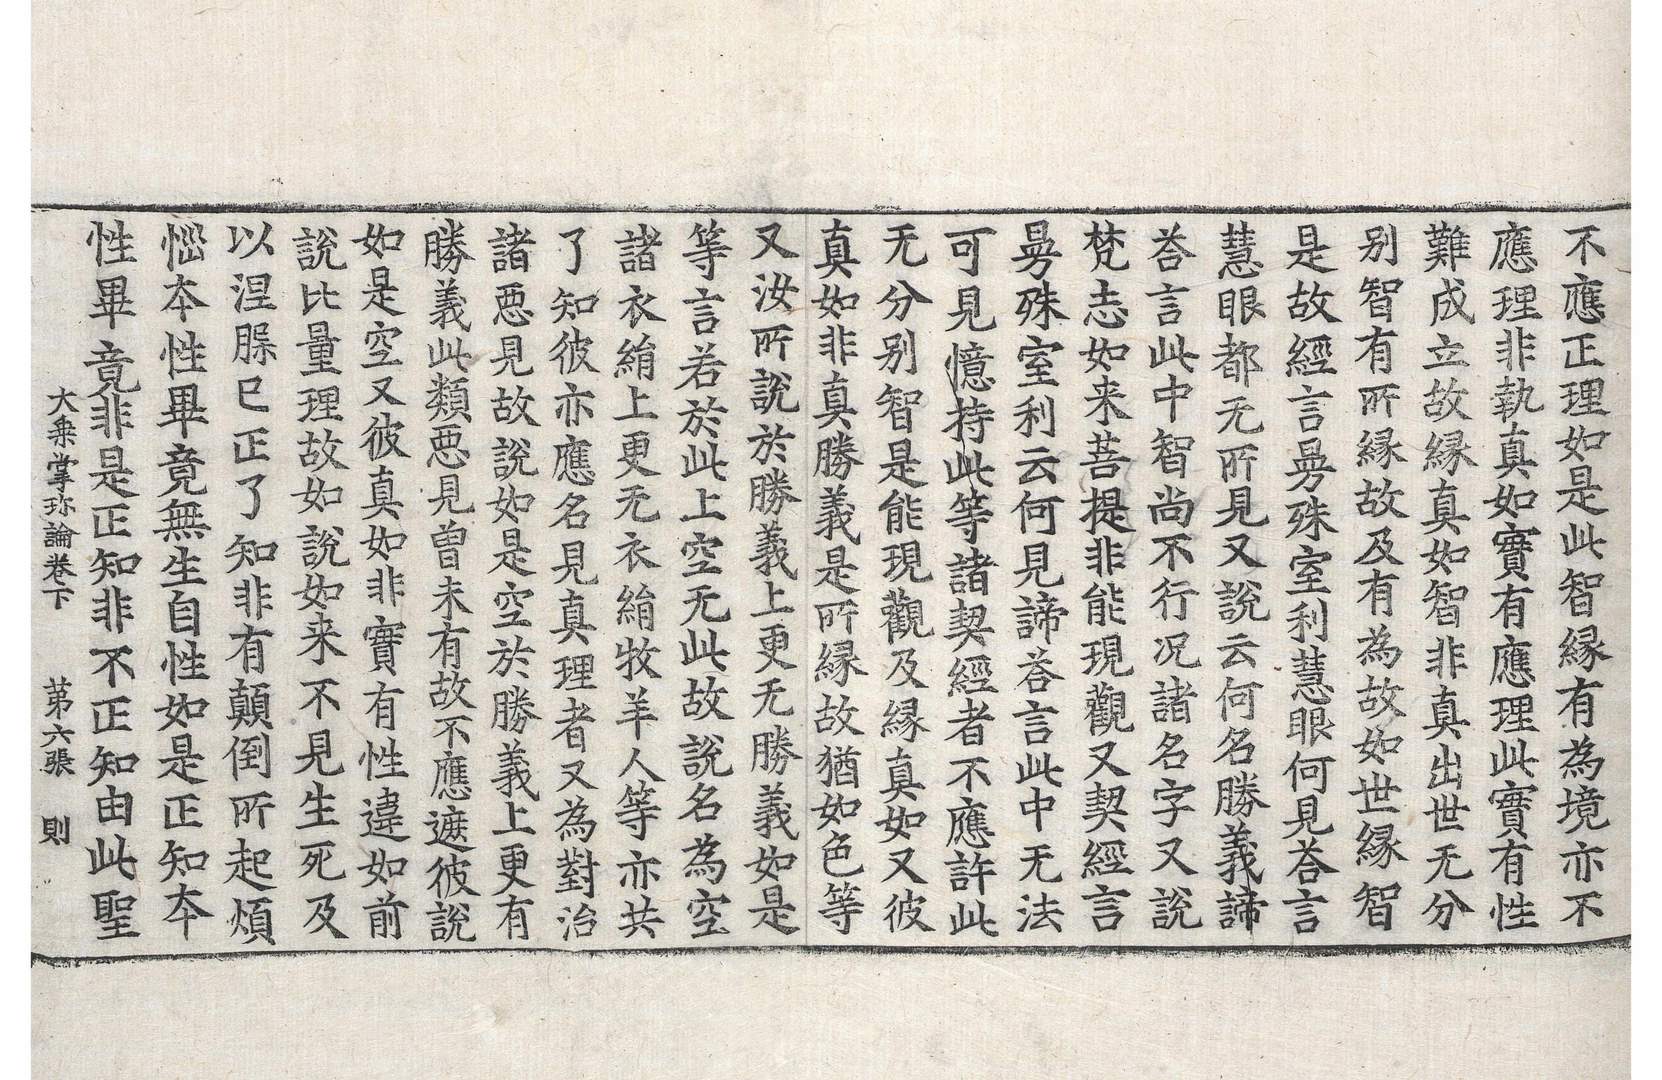 不應正理如是此智縁有為境亦不
應理非執真如實有應理此實有性
難成立故縁真如智非真出世无分
别智有所縁故及有為故如世縁智
是故經言曼殊室利慧眼何見荅言
慧眼都无所見又說云何名勝義諦
荅言此中智尚不行况諸名字又說
梵志如来菩提非能現觀又契經言
曼殊室利云何見諦荅言此中无法
可見憶持此等諸契經者不應許此
无分别智是能現觀及縁真如又彼
真如非真勝義是所縁故猶如色等
又汝所說於勝義上更无勝義如是
等言若於此上空无此故說名為空
諸衣絹上更无衣絹牧羊人等亦共
了知彼亦應名見真理者又為對治
諸惡見故說如是空於勝義上更有
勝義此類惡見曽未有故不應遮彼說
如是空又彼真如非實有性違如前
說比量理故如說如来不見生死及
以涅槃已正了知非有顛倒所起煩
惱本性畢竟無生自性如是正知本
性畢竟非是正知非不正知由此聖
大乗掌珎論卷下　第六張　則